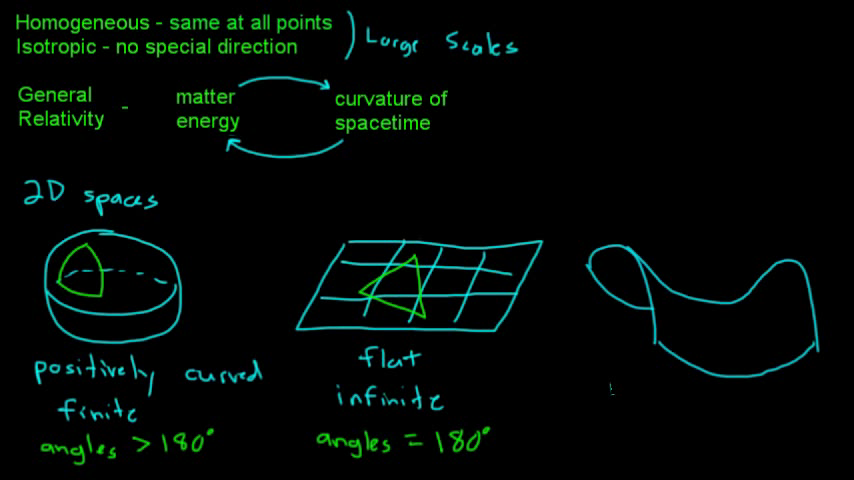 Homogeneous - same at all points
Isotropic - no special direction
Large Scales
General Relativity -
matter energy
curvature of spacetime
2D spaces
positively curved
finite
angles > 180°
flat
infinite
angles = 180°